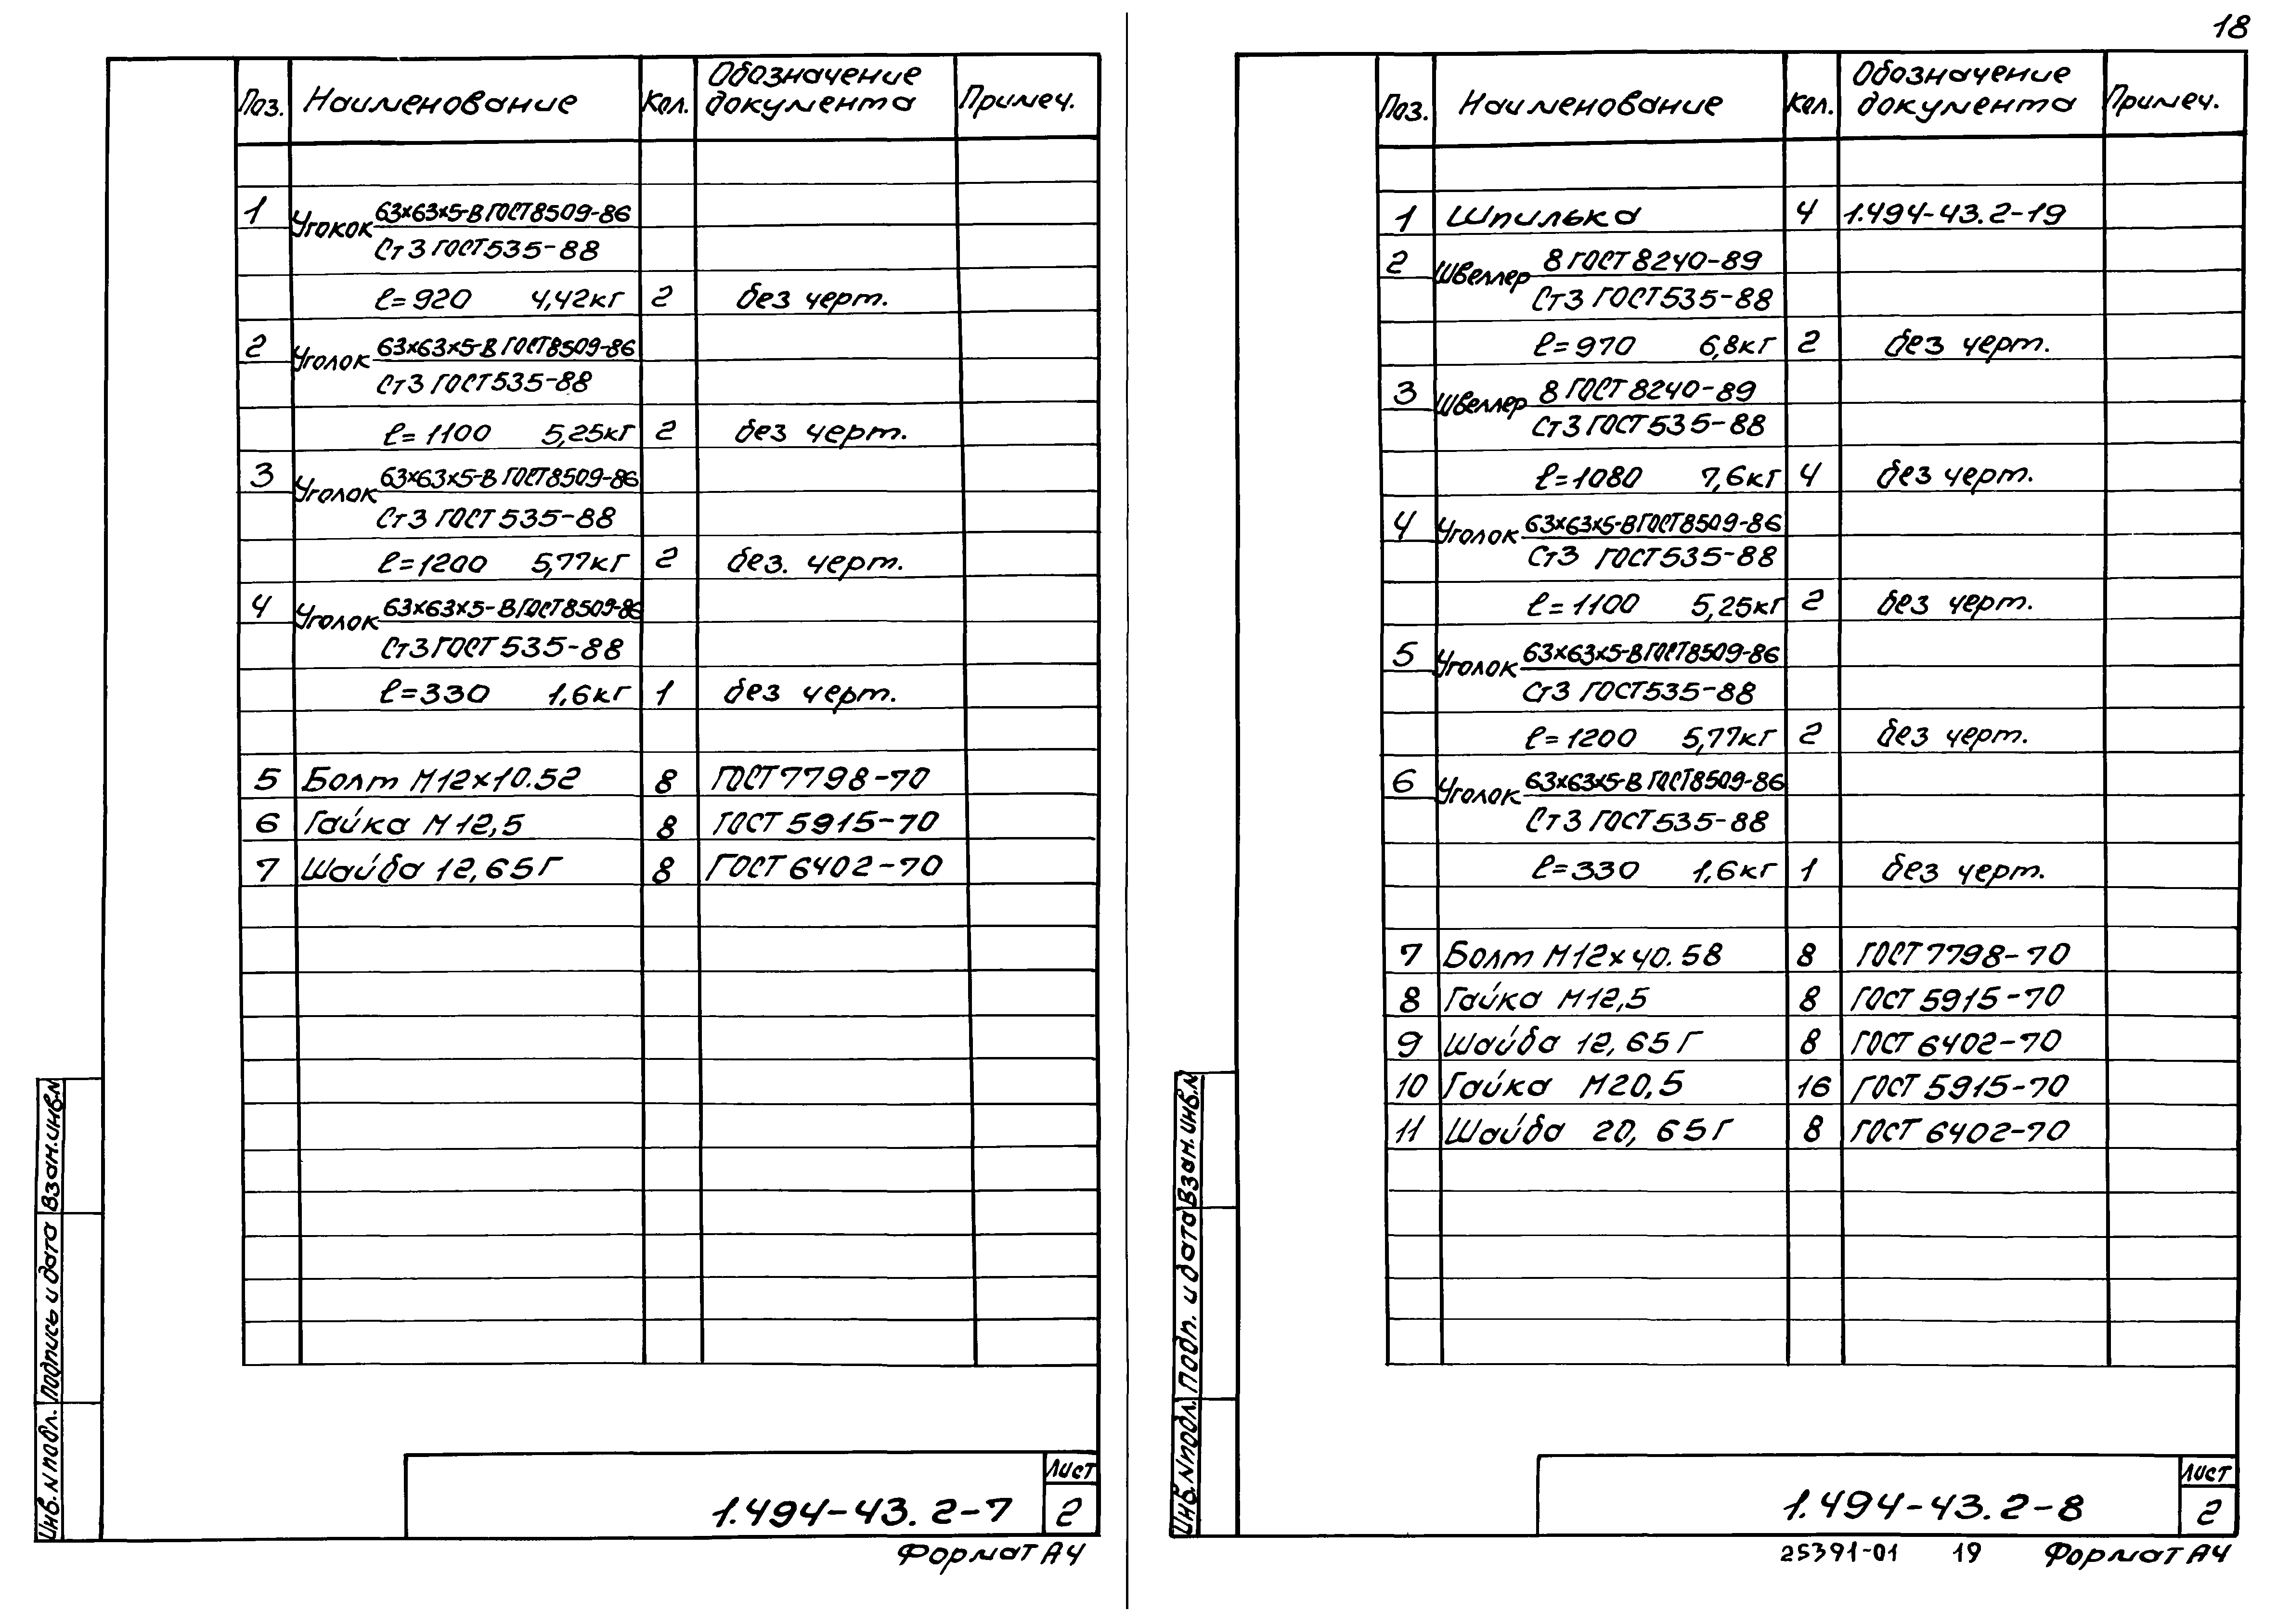 18
Поз. Наименование Кол. Обозначение документа Примеч.
1 Угокок 63х63х5-В ГОСТ8509-86
Ст3 ГОСТ535-88
ℓ=920 4,42кг 2 без черт.
2 Уголок 63х63х5-В ГОСТ8509-86
Ст3 ГОСТ535-88
ℓ=1100 5,25кг 2 без черт.
3 Уголок 63х63х5-В ГОСТ8509-86
Ст3 ГОСТ535-88
ℓ=1200 5,77кг 2 без. черт.
4 Уголок 63х63х5-В ГОСТ8509-86
Ст3 ГОСТ535-88
ℓ=330 1,6кг 1 без черт.
5 Болт М12х10.52 8 ГОСТ7798-70
6 Гайка М12,5 8 ГОСТ 5915-70
7 Шайба 12,65Г 8 ГОСТ 6402-70
Взам.инв.N
Подпись и дата
Инв. N подл.
1.494-43.2-7
Лист
2
Формат А4
Поз. Наименование Кол. Обозначение документа Примеч.
1 Шпилька 4 1.494-43.2-19
2 Швеллер 8 ГОСТ 8240-89
Ст3 ГОСТ535-88
ℓ=970 6,8кг 2 без черт.
3 Швеллер 8 ГОСТ 8240-89
Ст3 ГОСТ535-88
ℓ=1080 7,6кг 4 без черт.
4 Уголок 63х63х5-В ГОСТ8509-86
Ст3 ГОСТ535-88
ℓ=1100 5,25кг 2 без черт.
5 Уголок 63х63х5-В ГОСТ8509-86
Ст3 ГОСТ535-88
ℓ=1200 5,77кг 2 без черт.
6 Уголок 63х63х5-В ГОСТ8509-86
Ст3 ГОСТ535-88
ℓ=330 1,6кг 1 без черт.
7 Болт М12х40.58 8 ГОСТ7798-70
8 Гайка М12,5 8 ГОСТ 5915-70
9 Шайба 12,65Г 8 ГОСТ 6402-70
10 Гайка М20,5 16 ГОСТ 5915-70
11 Шайба 20,65Г 8 ГОСТ 6402-70
Взам.инв.N
Подп. и дата
Инв. N подл.
1.494-43.2-8
Лист
2
25391-01 19 Формат А4